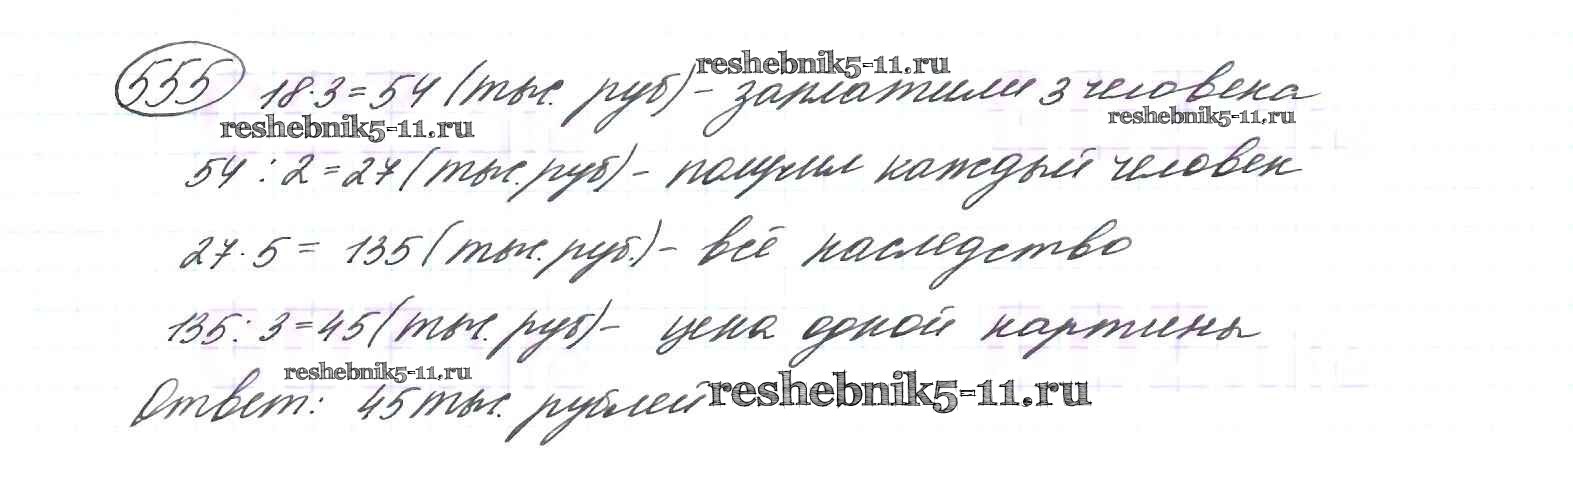 555 18·3=54 (тыс. руб) - заплатили 3 человека
54 : 2 = 27 (тыс. руб) - получил каждый человек
27·5 = 135 (тыс. руб.) - всё наследство
135 : 3 = 45 (тыс. руб) - цена одной картины
Ответ: 45 тыс. рублей
reshebnik5-11.ru
reshebnik5-11.ru
reshebnik5-11.ru
reshebnik5-11.ru
reshebnik5-11.ru